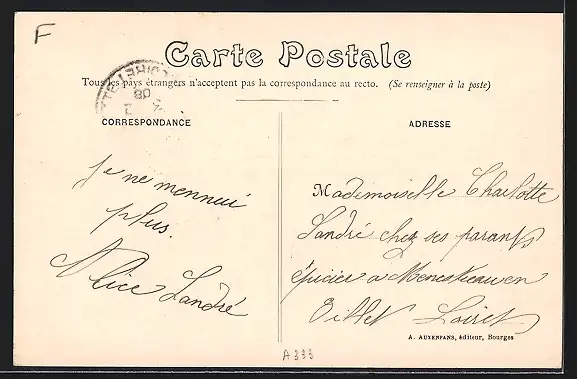 F
Carte Postale
Tous les pays étrangers n'acceptent pas la correspondance au recto. (Se renseigner à la poste)
CORRESPONDANCE
ADRESSE
je ne mennui
plus.
Alice Landré
Mademoiselle Charlotte
Landré chez ses parants
épicier a Menestreau en
Villet Loiret
A. AUXENFANS, éditeur, Bourges
A333